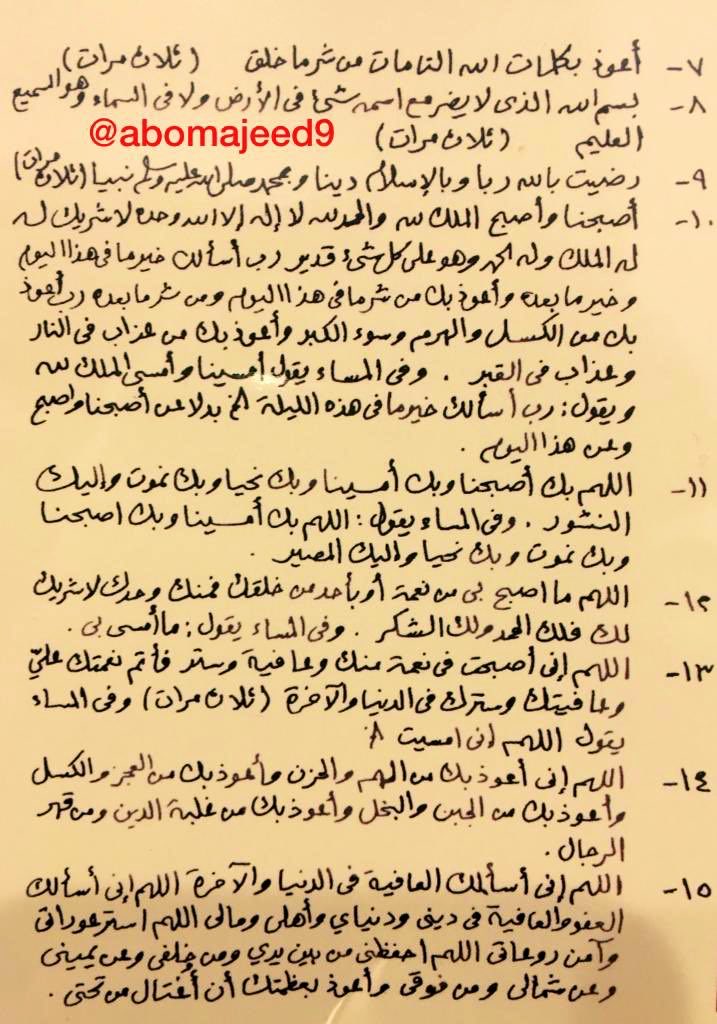 ٧- أعوذ بكلمات الله التامات من شر ما خلق (ثلاث مرات)
٨- بسم الله الذى لا يضر مع اسمه شئ فى الأرض ولا فى السماء وهو السميع
@abomajeed9
العليم (ثلاث مرات)
٩- رضيت بالله ربا وبالإسلام دينا وبمحمد صلى الله عليه وسلم نبيا (ثلاث مرات)
١٠- أصبحنا وأصبح الملك لله والحمد لله لا إله إلا الله وحده لا شريك له
له الملك وله الحمد وهو على كل شئ قدير رب أسألك خير ما فى هذا اليوم
وخير ما بعده وأعوذ بك من شر ما فى هذا اليوم ومن شر ما بعده رب أعوذ
بك من الكسل والهرم وسوء الكبر وأعوذ بك من عذاب فى النار
وعذاب فى القبر . وفى المساء يقول أمسينا وأمسى الملك لله
ويقول : رب أسألك خير ما فى هذه الليلة بدلا عن أصبحنا وأصبح
وعن هذا اليوم .
١١- اللهم بك أصبحنا وبك أمسينا وبك نحيا وبك نموت وإليك
النشور . وفى المساء يقول : اللهم بك أمسينا وبك اصبحنا
وبك نموت وبك نحيا وإليك المصير .
١٢- اللهم ما اصبح بى من نعمة أو بأحد من خلقك فمنك وحدك لا شريك
لك فلك الحمد ولك الشكر . وفى المساء يقول : ما أمسى بى .
١٣- اللهم إنى أصبحت فى نعمة منك وعافية وستر فأتم نعمتك عليّ
وعافيتك وسترك فى الدنيا والآخرة (ثلاث مرات) وفى المساء
يقول اللهم انى امسيت
١٤- اللهم إنى أعوذ بك من الهم والحزن وأعوذ بك من العجز والكسل
وأعوذ بك من الجبن والبخل وأعوذ بك من غلبة الدين ومن قهر
الرجال .
١٥- اللهم إنى أسألك العافية فى الدنيا والآخرة اللهم إنى أسألك
العفو والعافية فى دينى ودنياي وأهلى ومالى اللهم استر عوراتى
وآمن روعاتى اللهم احفظنى من بين يدي ومن خلفى وعن يمينى
وعن شمالى ومن فوقى وأعوذ بعظمتك أن أغتال من تحتى .